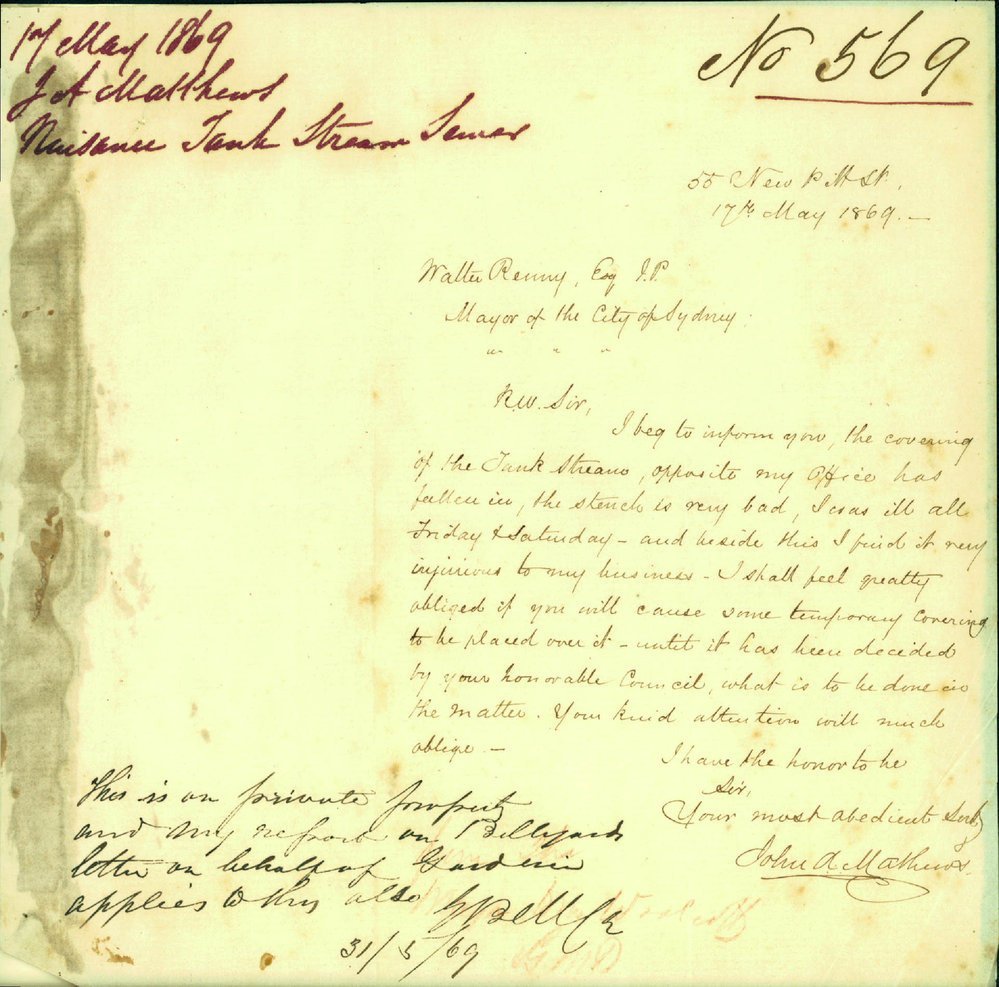 17 May 1869
J A Matthews
Nuisance Tank Stream Sewer
No 569
55 New Pitt St,
17th May 1869. —
Walter Renny, Esq J.P.
Mayor of the City of Sydney.
" " "
R.W. Sir,
I beg to inform you, the covering
of the Tank Stream, opposite my Office has
fallen in, the stench is very bad, I was ill all
Friday & Saturday – and beside this I find it very
injurious to my business – I shall feel greatly
obliged if you will cause some temporary covering
to be placed over it – until it has been decided
by your honorable Council, what is to be done in
the matter. Your kind attention will much
oblige. —
I have the honor to be
Sir,
Your most obedient Servt
John A Mathews.
This is on private property
and my report on Billyards
letter on behalf of
applies to this also
31/5/69